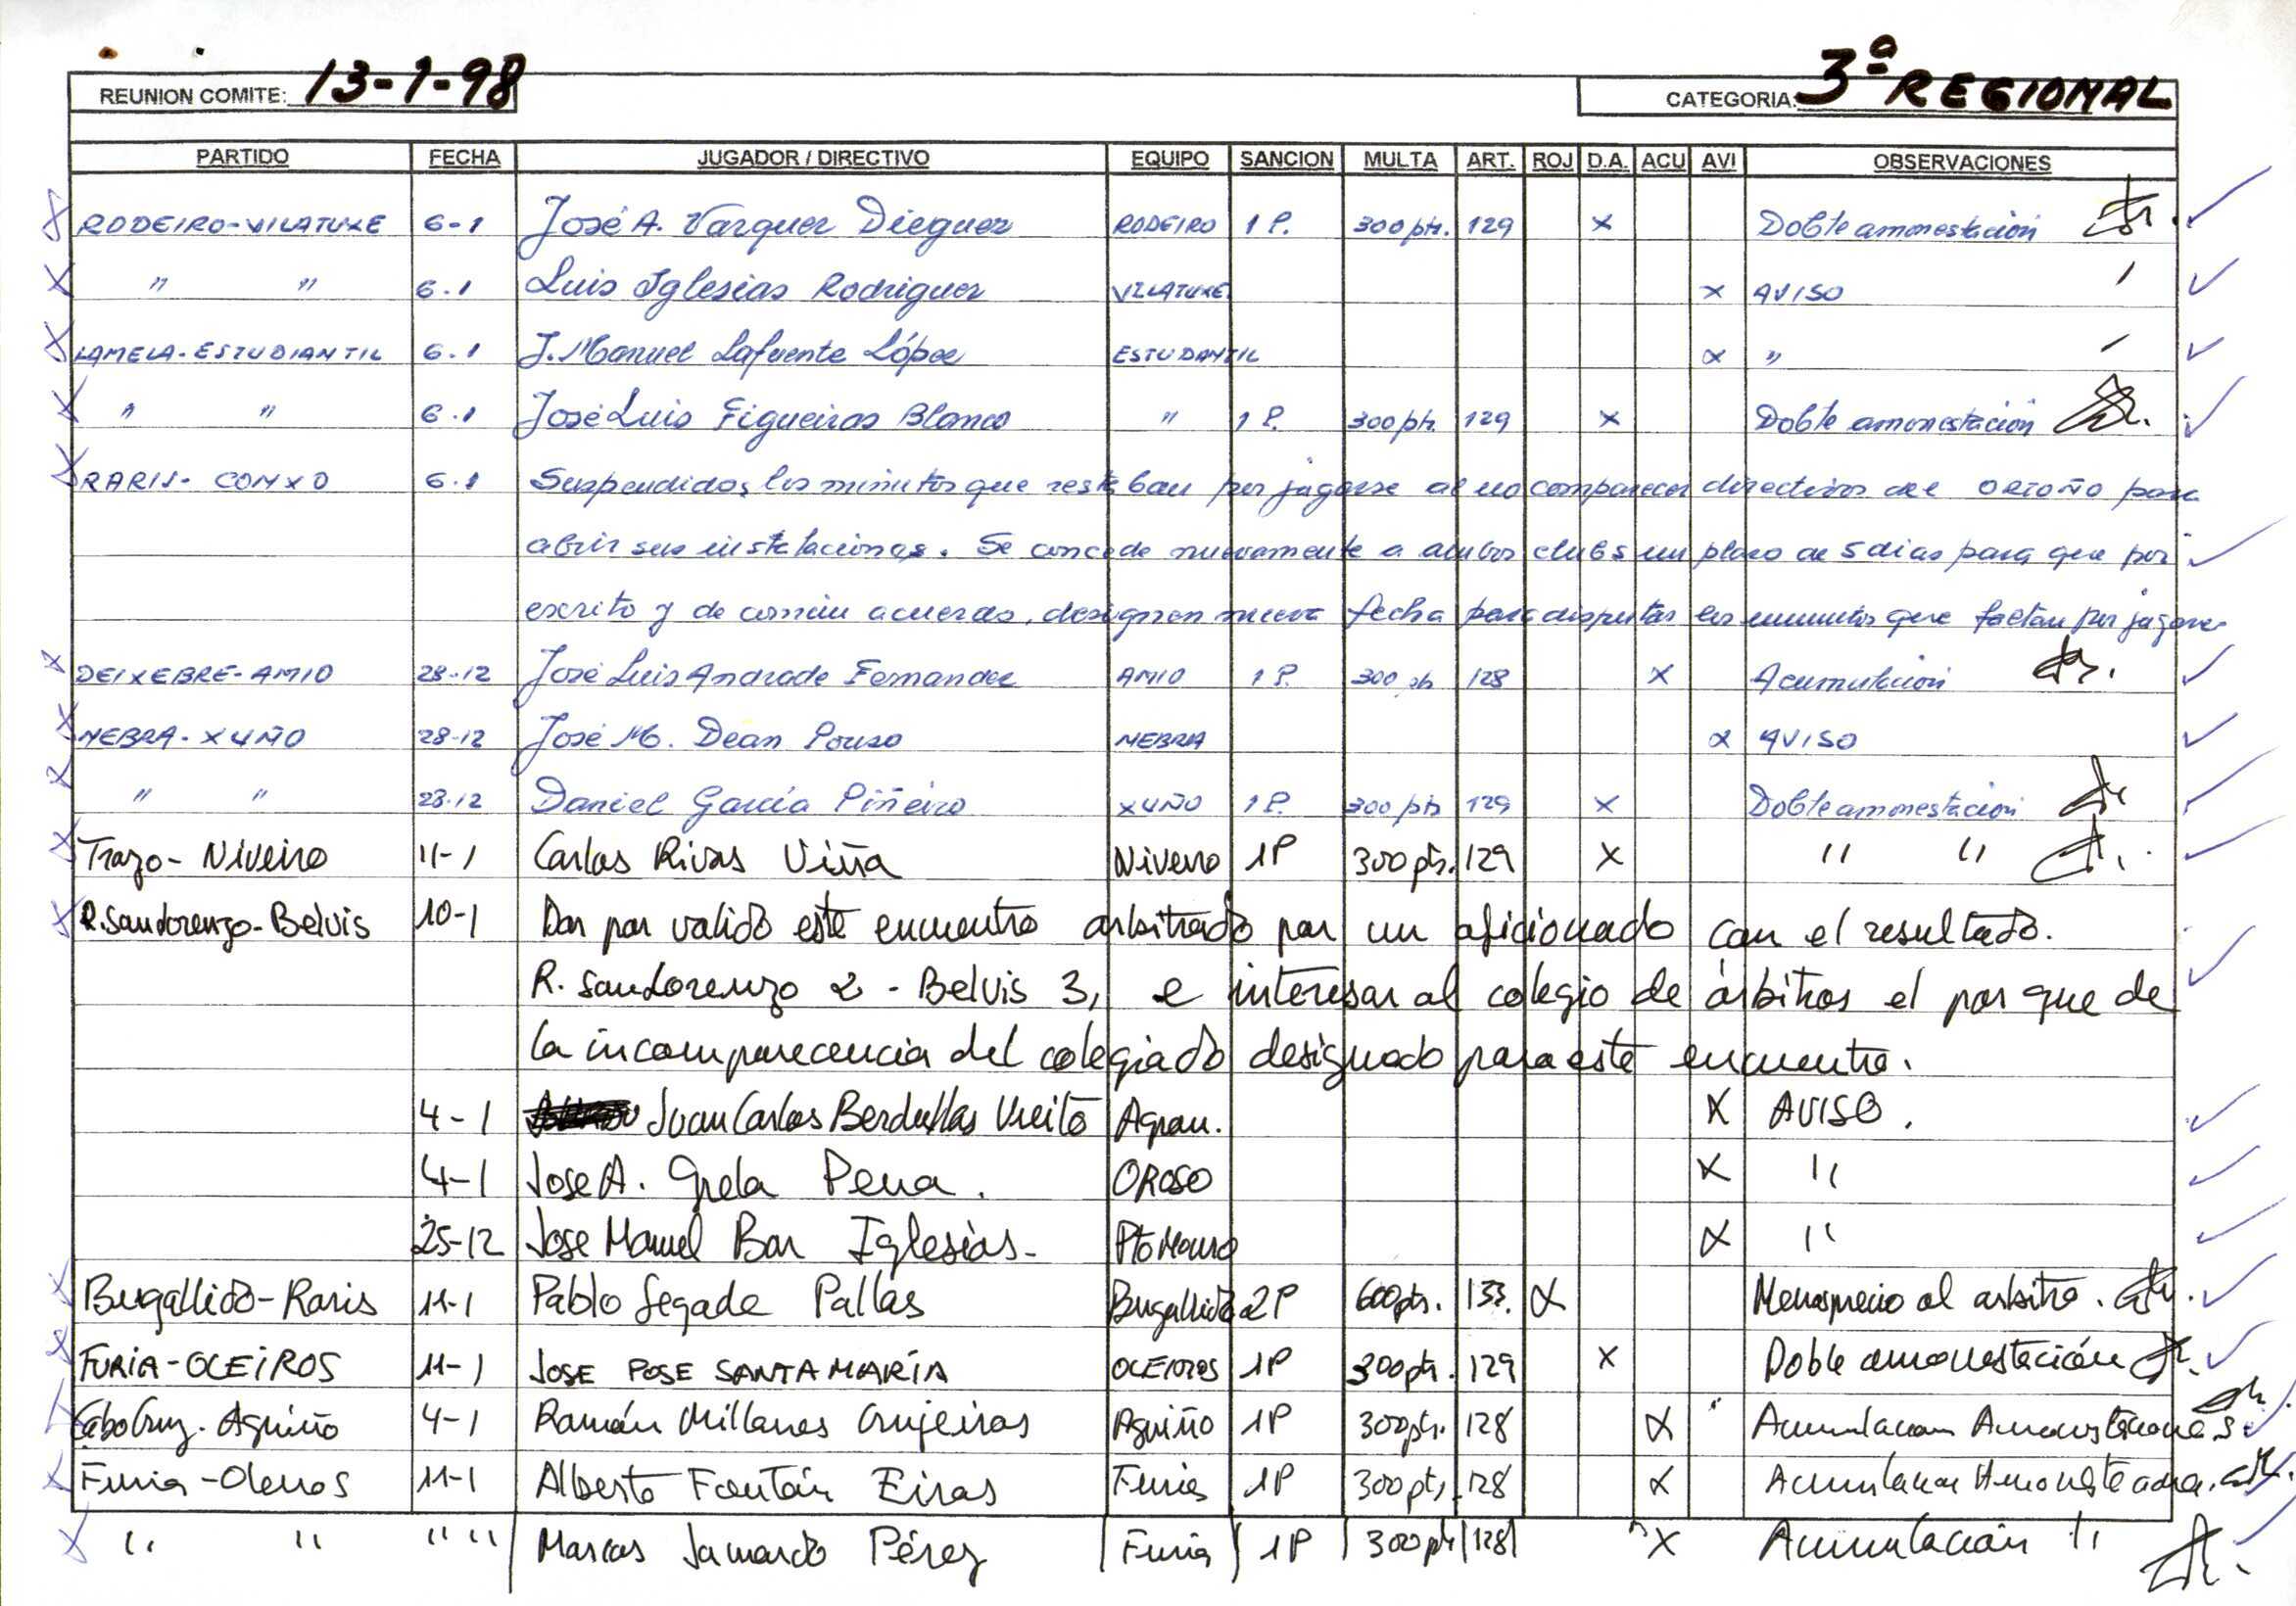 REUNION COMITE: 13-1-98 CATEGORIA: 3ª REGIONAL
PARTIDO FECHA JUGADOR / DIRECTIVO EQUIPO SANCION MULTA ART. ROJ D.A. ACU AVI OBSERVACIONES
RODEIRO-VILATUXE 6-1 José A. Vazquez Dieguez RODEIRO 1 P. 300 pts. 129 x Doble amonestación
" " 6.1 Luis Iglesias Rodriguez VILATUXE x AVISO
LAMELA-ESTUDIANTIL 6.1 J. Manuel Lafuente López ESTUDANTIL x "
" " 6.1 José Luis Figueiras Blanco " 1 P. 300 pts. 129 x Doble amonestación
RARIS- CONXO 6.1 Suspendidos los minutos que restaban por jugarse al no comparecer directivos del ORTOÑO para
abrir sus instalaciones. Se concede nuevamente a ambos clubs un plazo de 5 dias para que por
escrito y de común acuerdo, designen nueva fecha para disputar los minutos que faltan por jugarse
DEIXEBRE-AMIO 28-12 José Luis Andrade Fernandez AMIO 1 P. 300 pts 128 x Acumulación
NEBRA-XUÑO 28-12 José M. Dean Pouso NEBRA x AVISO
" " 28.12 Daniel García Piñeiro XUÑO 1 P. 300 pts 129 x Doble amonestación
Trazo- Niveiro 11-1 Carlos Rivas Viña Niveiro 1P 300 pts. 129 X " "
R.SanLorenzo-Belvis 10-1 Dar por valido este encuentro arbitrado por un aficionado con el resultado.
R. SanLorenzo 2 - Belvis 3, e interesar al colegio de árbitros el por que de
la incomparecencia del colegiado designado para este encuentro.
4-1 Juan Carlos Berdullas Vieito Agron. X AVISO.
4-1 Jose A. Grela Pena. OROSO X "
25-12 Jose Manuel Bar Iglesias- Pto Mouro X "
Bugallido-Raris 11-1 Pablo Segade Pallas Bugallido 2P 600pts. 133. X Menosprecio al arbitro.
FURIA-OLEIROS 11-1 JOSE POSE SANTAMARÍA OLEIROS 1P 300pts. 129 X Doble amonestación
CaboCruz. Aguiño 4-1 Ramón Millares Crujeiras Aguiño 1P 300pts. 128 X Acumulacion Amonestaciones
Furia-Oleiros 11-1 Alberto Fontán Eiras Furia 1P 300pts. 128 X Acumulacion
" " " " Marcos Jamardo Pérez Furia 1P 300pts 128 X Acumulación "